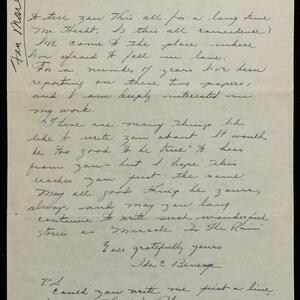 Fan Mai
to tell you this all for a long time
Mr. Hecht, Is this all coincidence?
I've come to the place where
I'm afraid to fall in love.
For a number of years I've been
reporting on three two papers,
and I am deeply interested in
my work.
There are many things I'd
like to write you about. It would
be "too good to be true" to hear
from you - but I hope this
reaches you just the same.
May all good things be yours,
always, and may you long
continue to write such wonderful
stories as "Miracle In The Rain"
Ever gratefully yours
Ida E
P.S.
Could you write me just a line,